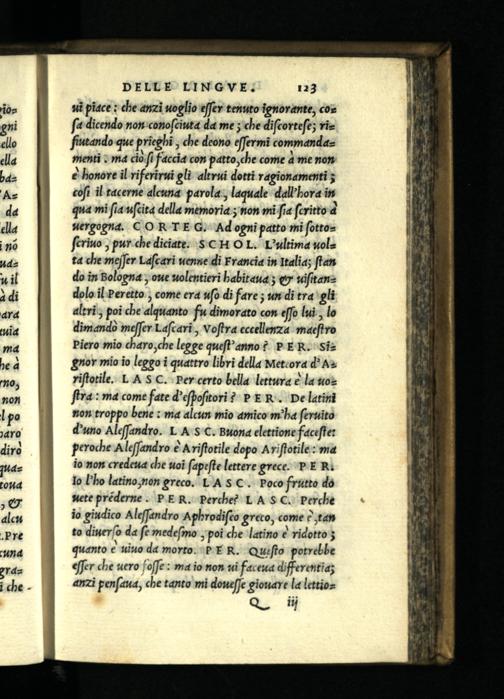 DELLE LINGVE. 123
ui piace: che anzi uoglio esser tenuto ignorante, co=
sa dicendo non conosciuta da me; che discortese; ri=
fiutando que prieghi, che deono essermi commanda=
menti. ma ciò si faccia con patto, che come à me non
è honore il riferirui gli altrui dotti ragionamenti;
cosi il tacerne alcuna parola, laquale dall'hora in
qua mi sia uscita della memoria; non mi sia scritto à
uergogna. CORTEG. Ad ogni patto mi sotto=
scriuo, pur che diciate. SCHOL. L'ultima uol=
ta che messer Lascari uenne di Francia in Italia; stan
do in Bologna, oue uolentieri habitaua; & uisitan=
dolo il Peretto, come era uso di fare; un di tra gli
altri, poi che alquanto fu dimorato con esso lui, lo
dimandò messer Lascari, Vostra eccellenza maestro
Piero mio charo, che legge quest'anno? PER. Si=
gnor mio io leggo i quattro libri della Meteora d'A=
ristotile. LASC. Per certo bella lettura è la uo=
stra: ma come fate d'espositori? PER. De latini
non troppo bene: ma alcun mio amico m'ha seruito
d'uno Alessandro. LASC. Buona elettione faceste:
peroche Alessandro è Aristotile dopo Aristotile: ma
io non credeua che uoi sapeste lettere grece. PER.
Io l'ho latino, non greco. LASC. Poco frutto do
uete préderne. PER. Perche? LASC. Perche
io giudico Alessandro Aphrodiseo greco, come è, tan
to diuerso da se medesmo, poi che latino è ridotto;
quanto è uiuo da morto. PER. Questo potrebbe
esser che uero fosse: ma io non ui faceua differentia;
anzi pensaua, che tanto mi douesse giouare la lettio=
Q iij